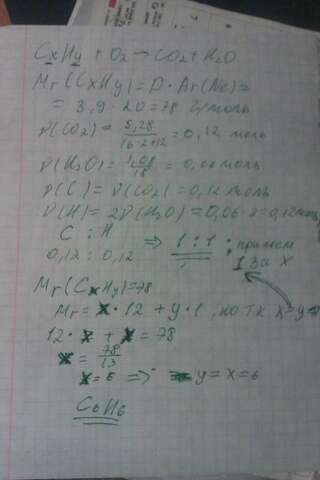 CxHy + O2 → CO2 + H2O
Mr(CxHy) = D · Ar(Ne) =
= 3,9 · 20 = 78 г/моль
ν(CO2) = 5,28 / (16·2+12) = 0,12 моль
ν(H2O) = 1,08 / 18 = 0,06 моль
ν(C) = ν(CO2) = 0,12 моль
ν(H) = 2ν(H2O) = 0,06·2 = 0,12 моль
C : H
0,12 : 0,12 ⇒ 1 : 1 ; примем
1 за X
Mr(CxHy) = 78
Mr = x · 12 + y · 1, но т.к. x = y
12 · x + x = 78
x = 78 / 13
x = 6 ⇒ y = x = 6
C6H6